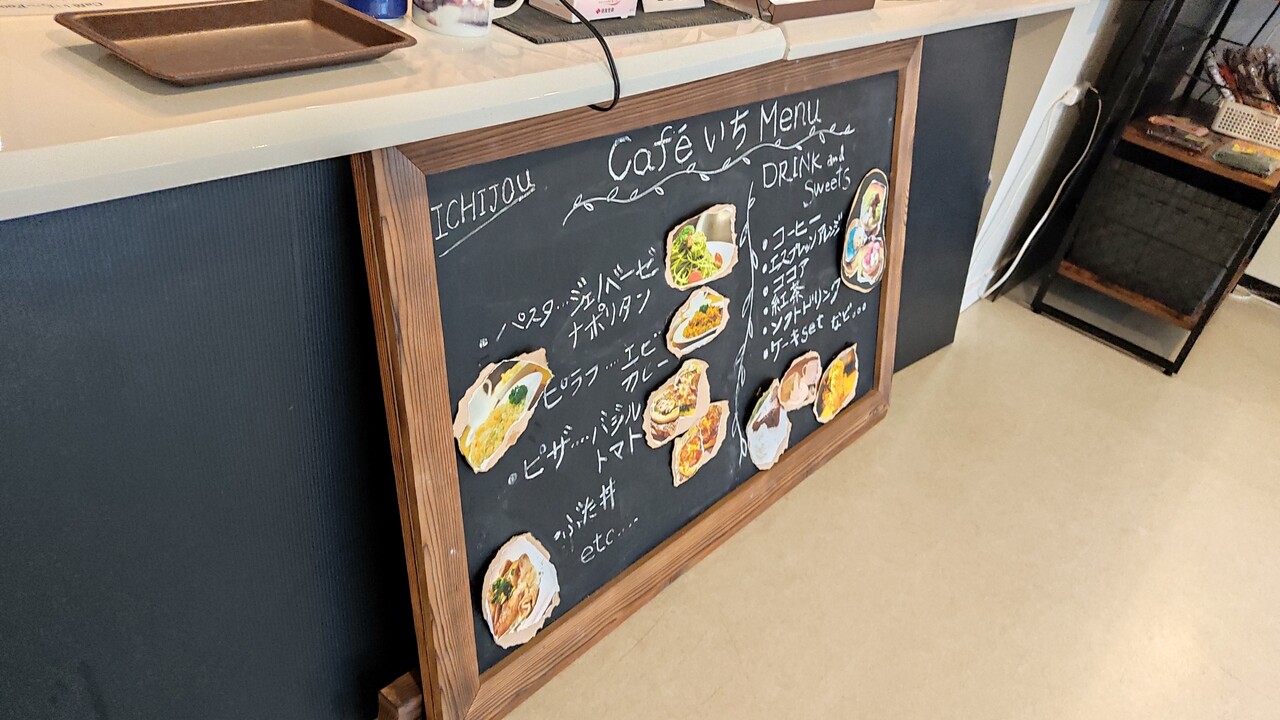 Café いち Menu
ICHIJOU
・パスタ…ジェノベーゼ
ナポリタン
・ピラフ…エビ
カレー
・ピザ…バジル
トマト
・ぶた丼
etc…
DRINK and
Sweets
・コーヒー
・エスプレッソアレンジ
・ココア
・紅茶
・ソフトドリンク
・ケーキset など…